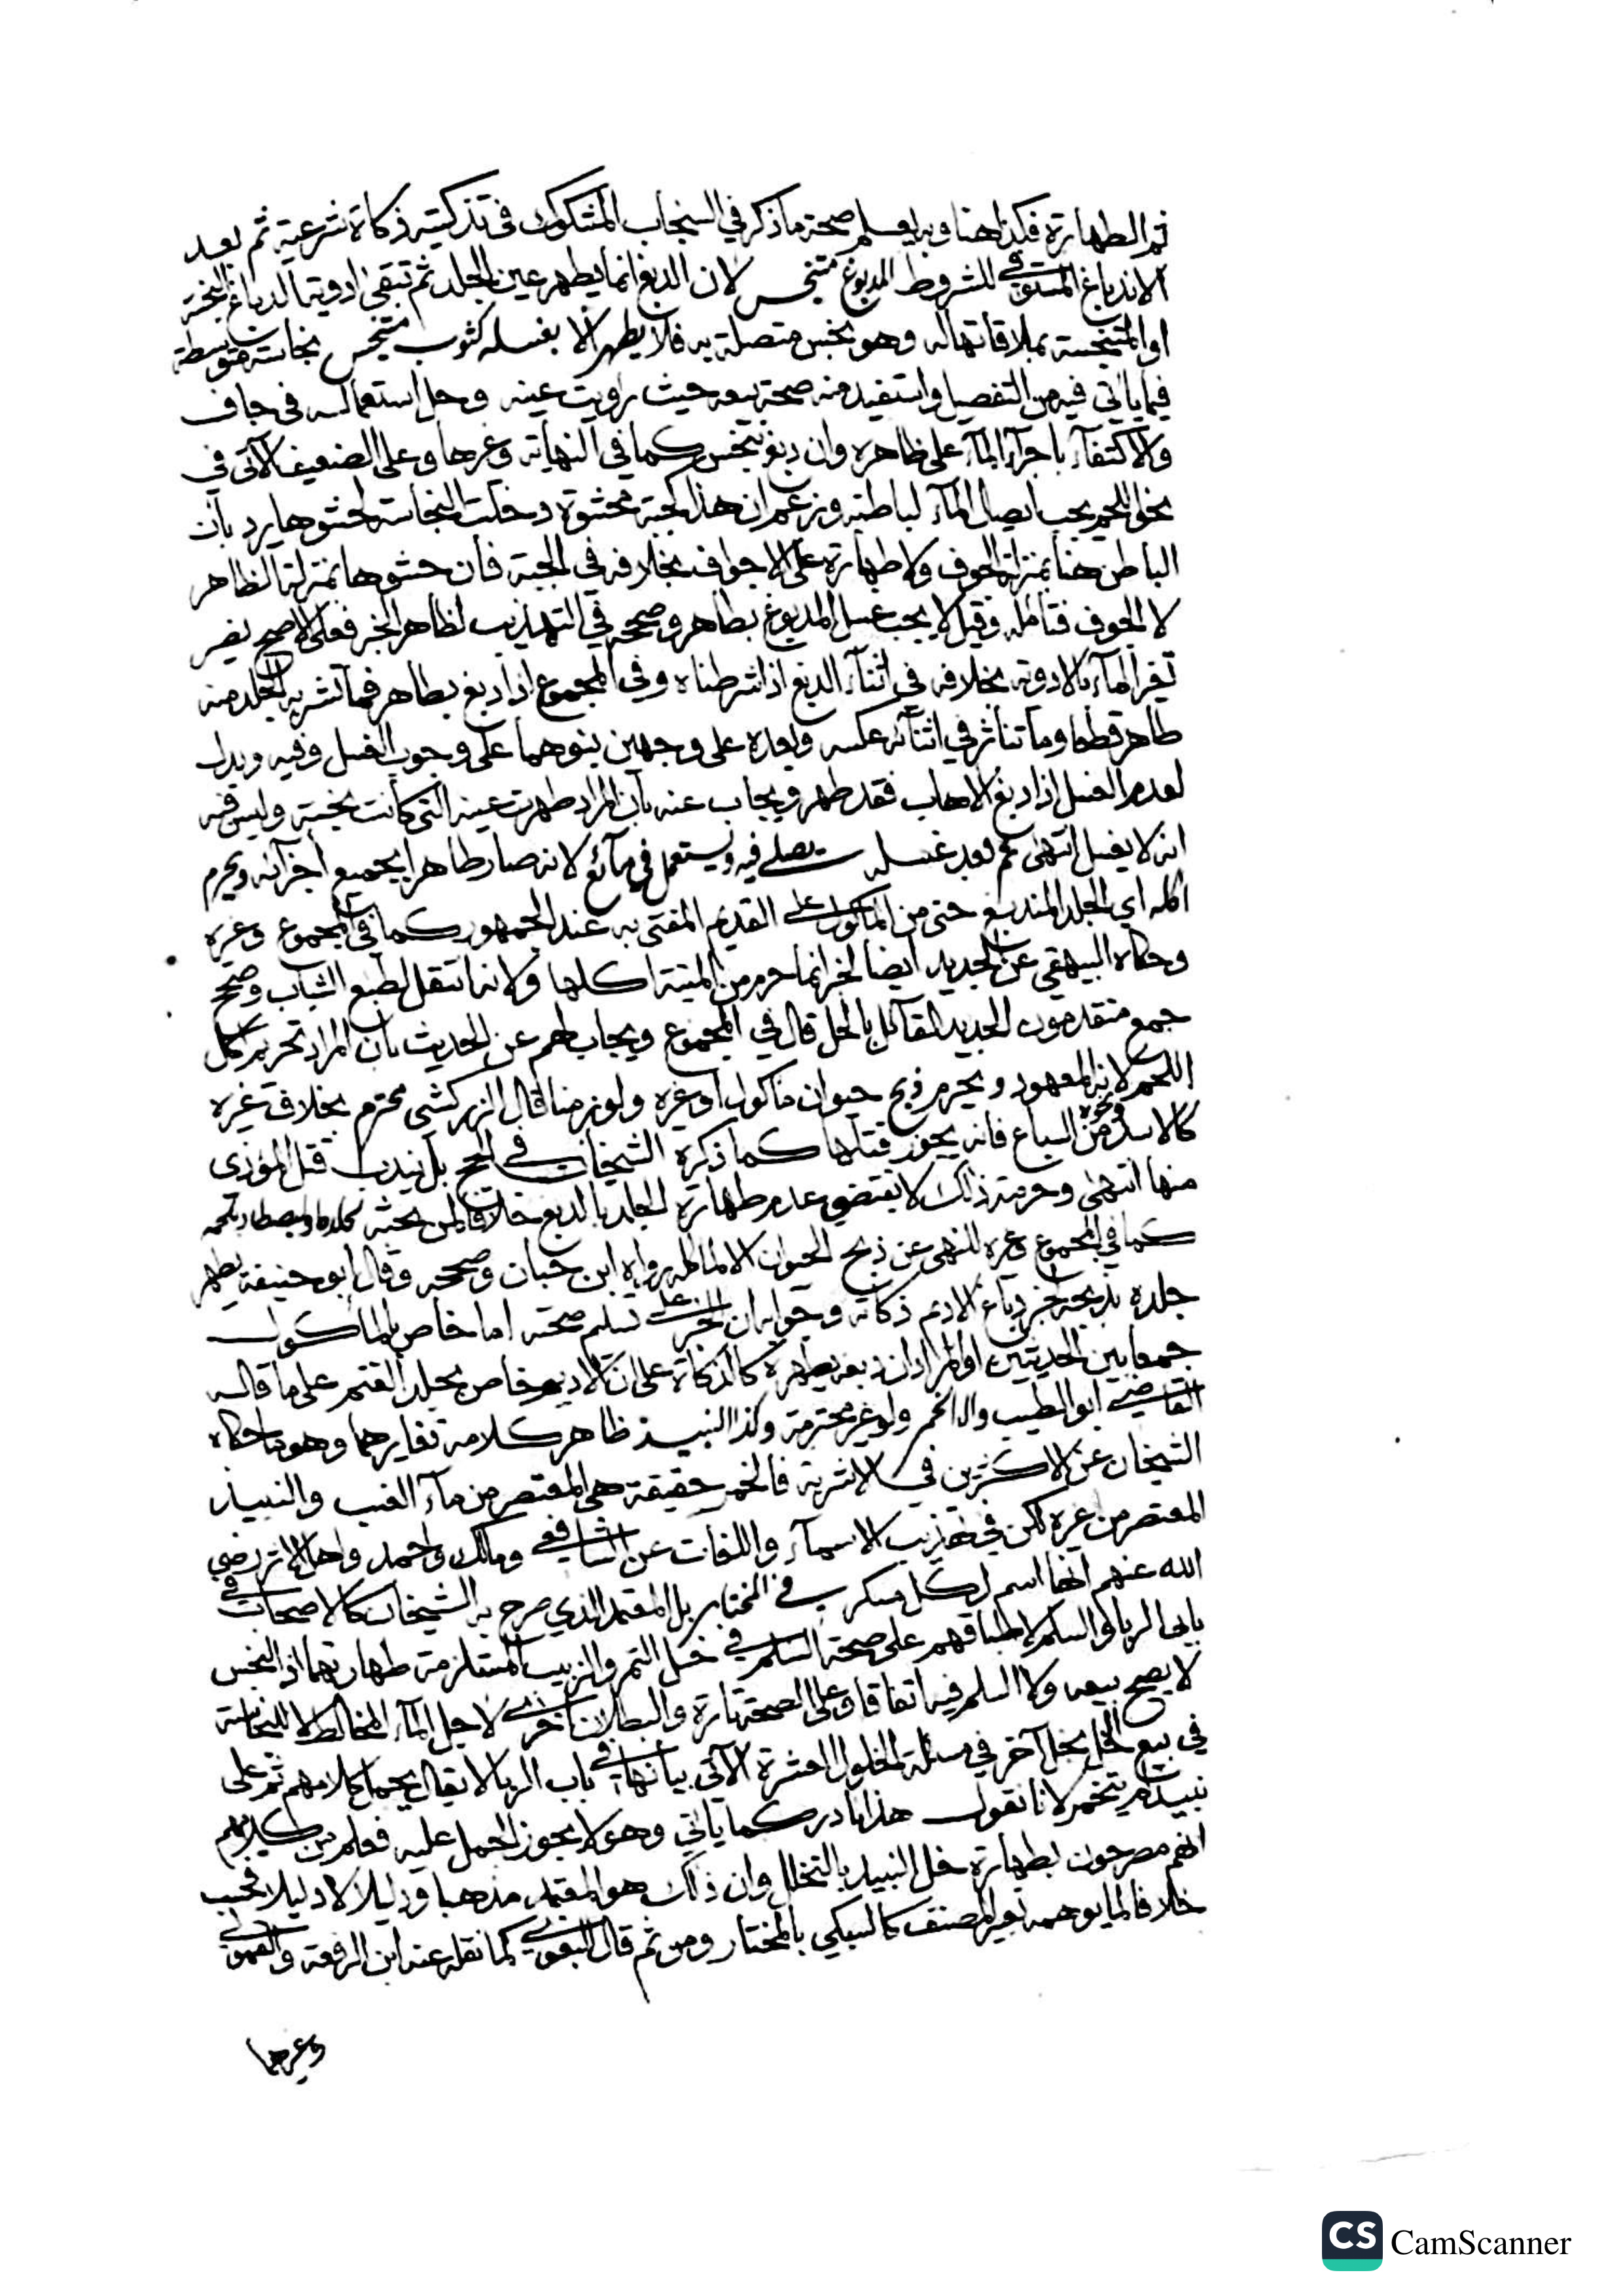 ثم الطهارة فكذا هنا وبه يعلم صحة ما ذكر في السنجاب المشكوك في تذكيته ذكاة شرعية ثم بعد
الاندباغ المستوفي للشروط المدبوغ متنجس لان الدبغ انما يطهر عين الجلد ثم تبقى ادوية الدباغ النجسة
او المتنجسة بملاقاتها له وهو نجس متصلة به فلا يطهر الا بغسله كثوب متنجس نجاسة متوسطة
فيما ياتي فيه من التفصيل واستفيد منه صحة بيعه حيث رويت عينه وحل استعماله في جاف
والاكتفاء باجراء الماء على ظاهره وان دبغ بنجس كما في النهاية وغيرها وعلى الضعيف الآتي في
نحو اللحم يجب ايصال الماء لباطنه وزعم ان هذا كجبة محشوة دخلت النجاسة لحشوها يرد بان
الباطن هنا بمنزلة الجوف ولا طهارة على الاجواف بخلافه في الجبة فان حشوها بمنزلة الظاهر
لا الجوف فتامله وقيل لا يجب غسل المدبوغ بطاهر وصححه في التهذيب لظاهر الخبر فعلى الاصح يضر
تغير الماء بالادوية بخلافه في اثناء الدبغ اذا شرطناه وفي المجموع اذا دبغ بطاهر فما تشربه الجلد منه
طاهر قطعا وما تناثر في اثنائه عكسه وبعده على وجهين بنوهما على وجوب الغسل وفيه ويدل
لعدم الغسل اذا دبغ الاهاب فقد طهر ويجاب عنه بان المراد طهرت عينه التي كانت نجسة وليس فيه
انه لا يغسل انتهى ثم بعد غسله يصلى فيه ويستعمل في مائع لانه صار طاهرا بجميع اجزائه ويحرم
اكله اي الجلد المندبغ حتى من الماكول على القديم المفتى به عند الجمهور كما في المجموع وغيره
وحكاه البيهقي عن الجديد ايضا لخبر انما حرم من الميتة اكلها ولانه انتقل لطبع الثياب وصحح
جمع متقدمون الجديد القائل بالحل قال في المجموع ويجاب لهم عن الحديث بان المراد تحريم اكل
اللحم لانه المعهود ويحرم ذبح حيوان ماكول او غيره ولو زمنا قال الزركشي محترم بخلاف غيره
كالاسد ونحوه من السباع فانه يجوز قتلها كما ذكره الشيخان في الحج بل يندب قتل المؤذي
منها انتهى وحرمة ذلك لا يقتضي عدم طهارة الجلد بالدبغ خلافا لمن بحثه لجلده او ليصطاد بلحمه
كما في المجموع وغيره للنهي عن ذبح الحيوان الا لماكله رواه ابن حبان وصححه وقال ابو حنيفة يطهر
جلده بذبحه لخبر دباغ الاديم ذكاته وجوابه ان الخبر على تسليم صحته اما خاص بالماكول
جمعا بين الحديثين او المراد ان دبغه يطهره كالذكاة على ان الاديم خاص بجلد الغنم على ما قاله
القاضي ابو الطيب والا الخمر ولو غير محترمة وكذا النبيذ ظاهر كلامه تغايرهما وهو ما حكاه
الشيخان عن الاكثرين في الاشربة فالخمر حقيقة هي المعتصر من ماء العنب والنبيذ
المعتصر من غيره لكن في تهذيب الاسماء واللغات عن الشافعي ومالك واحمد واهل الاثر رضي
الله عنهم انها اسم لكل مسكر في المختار بل المعتمد الذي صرح به الشيخان كالاصحاب في
بابي الربا والسلم لاطباقهم على صحة السلم في خل التمر والزبيب المستلزمة طهارتهما اذ النجس
لا يصح بيعه ولا السلم فيه اتفاقا وعلى الصحة تارة والبطلان اخرى لاجل الماء المخالط لا للنجاسة
في بيع الخل بخل آخر في مسئلة الخلول العشرة الآتي بيانها في باب الربا لا يقال يحمل كلامهم ثم على
نبيذ لم يتخمر لانا نقول هذا نادر كما ياتي وهو لا يجوز الحمل عليه فعلم من كلامهم
انهم مصرحون بطهارة خل النبيذ بالتخلل وان ذلك هو المعتمد مذهبا ودليلا لا دليلا فحسب
خلافا لما يوهمه تعبير المصنف كالسبكي بالمختار ومن ثم قال البغوي كما نقله عنه ابن الرفعة والقمولي
وغيرهما
CS CamScanner